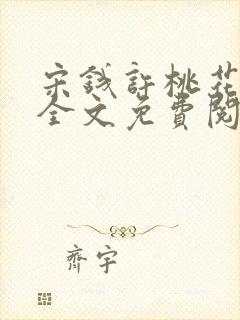 宋钱許桃花
全文免費閱
齊宇